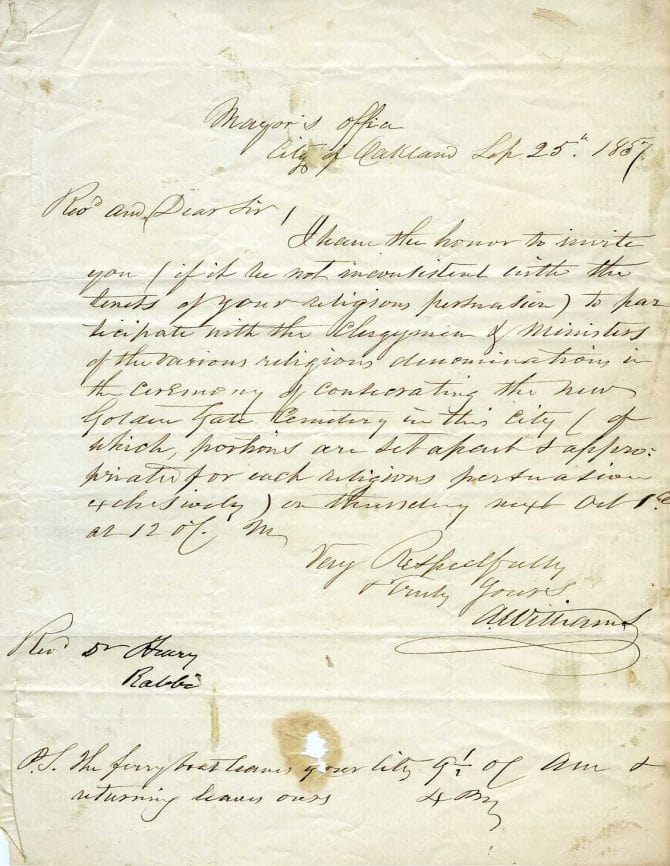 Mayor's Office
City of Oakland Sep 25th. 1857.
Revd and Dear Sir,
I have the honor to invite
you (if it be not inconsistent with the
tenets of your religious persuasion) to par
ticipate with the Clergymen & Ministers
of the various religious denominations in
the ceremony of consecrating the new
Golden Gate Cemetery in this City (of
which, portions are set apart & appro-
priated for each religious persuasion
exclusively) on Thursday next Oct 1st
at 12 o'C. M
Very Respectfully
& Truly Yours
A. Williams
Revd Dr Henry
Rabbi
P.S. The ferry boat leaves your City 9½ oC AM &
returning leaves ours 4 PM